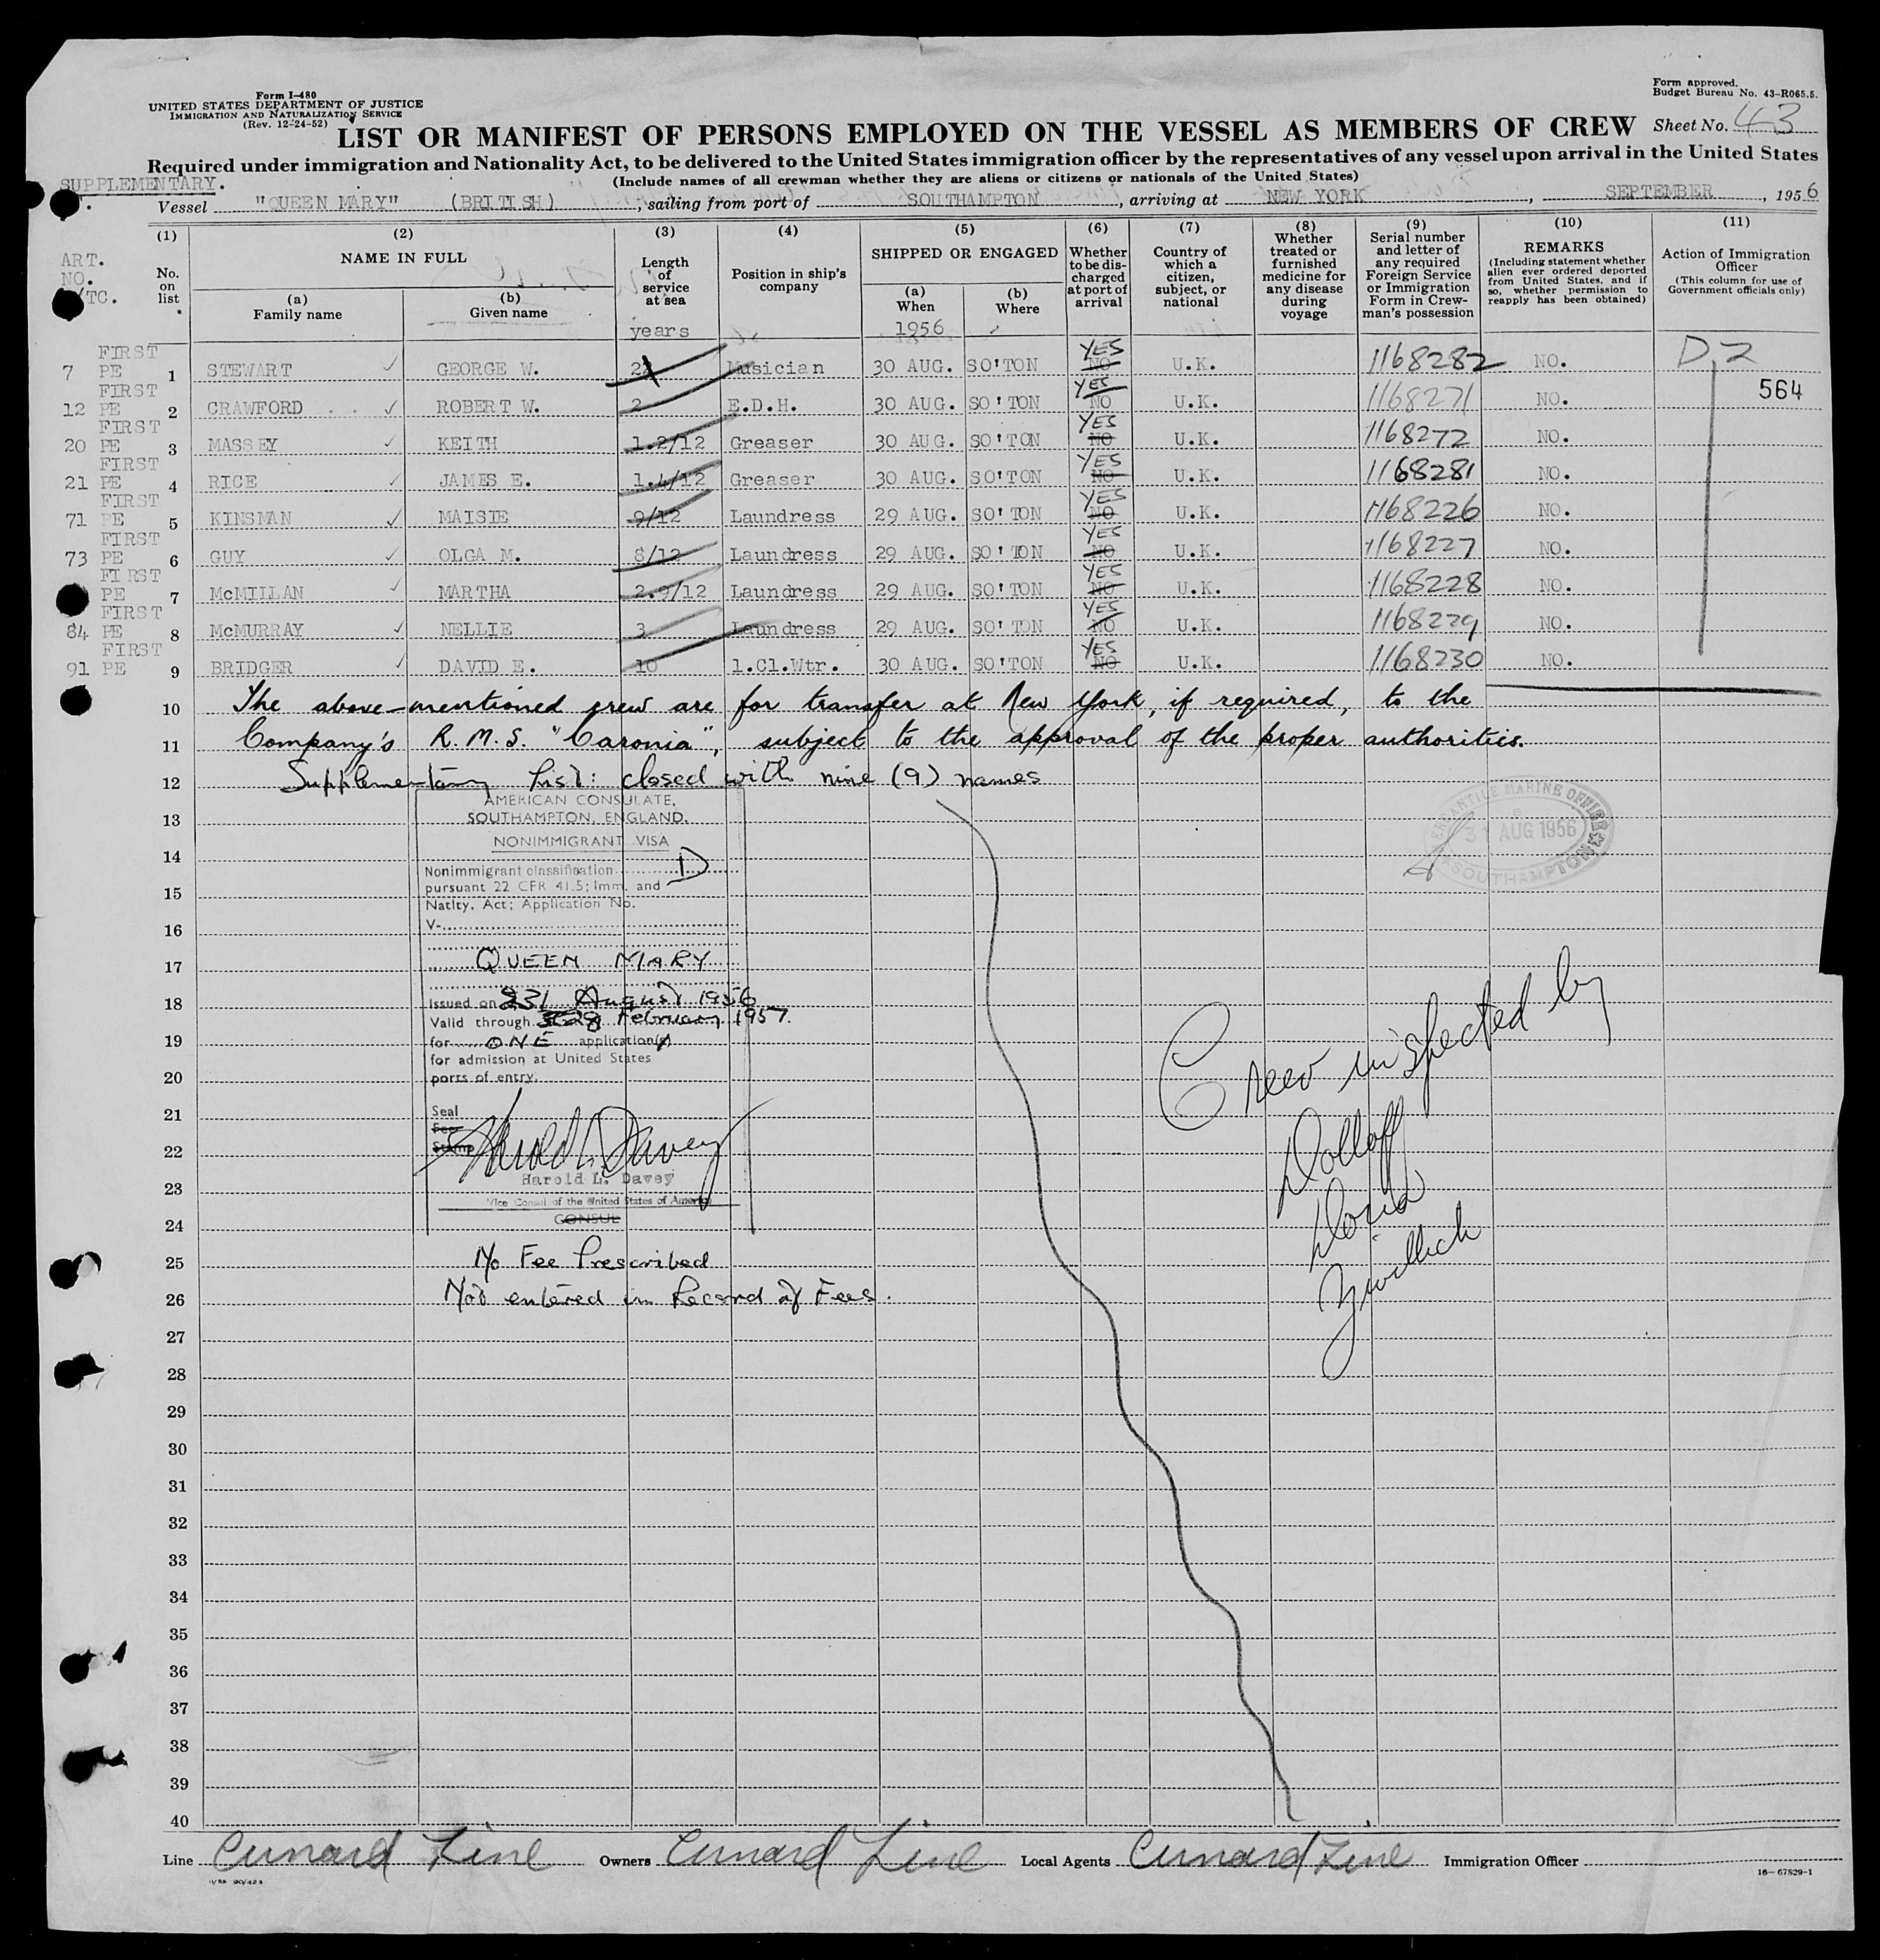 Form I-480
UNITED STATES DEPARTMENT OF JUSTICE
IMMIGRATION AND NATURALIZATION SERVICE
(Rev. 12-24-52)
Form approved.
Budget Bureau No. 43-R065.5.
LIST OR MANIFEST OF PERSONS EMPLOYED ON THE VESSEL AS MEMBERS OF CREW Sheet No. 43
Required under immigration and Nationality Act, to be delivered to the United States immigration officer by the representatives of any vessel upon arrival in the United States
(Include names of all crewman whether they are aliens or citizens or nationals of the United States)
SUPPLEMENTARY.
Vessel "QUEEN MARY" (BRITISH), sailing from port of SOUTHAMPTON, arriving at NEW YORK, SEPTEMBER, 1956
ART. NO. /TC.
(1) No. on list
(2) NAME IN FULL (a) Family name (b) Given name
(3) Length of service at sea years
(4) Position in ship's company
(5) SHIPPED OR ENGAGED (a) When 1956 (b) Where
(6) Whether to be discharged at port of arrival
(7) Country of which a citizen, subject, or national
(8) Whether treated or furnished medicine for any disease during voyage
(9) Serial number and letter of any required Foreign Service or Immigration Form in Crewman's possession
(10) REMARKS (Including statement whether alien ever ordered deported from United States, and if so, whether permission to reapply has been obtained)
(11) Action of Immigration Officer (This column for use of Government officials only)
7 FIRST PE 1 STEWART GEORGE W. Musician 30 AUG. SO'TON YES NO U.K. 1168282 NO. D.2
12 FIRST PE 2 CRAWFORD ROBERT W. 2 E.D.H. 30 AUG. SO'TON YES NO U.K. 1168271 NO. 564
20 FIRST PE 3 MASSEY KEITH 1.2/12 Greaser 30 AUG. SO'TON YES NO U.K. 1168272 NO.
21 FIRST PE 4 RICE JAMES E. 1.4/12 Greaser 30 AUG. SO'TON YES NO U.K. 1168281 NO.
71 FIRST PE 5 KINSMAN MAISIE 9/12 Laundress 29 AUG. SO'TON YES NO U.K. 1168226 NO.
73 FIRST PE 6 GUY OLGA M. 8/12 Laundress 29 AUG. SO'TON YES NO U.K. 1168227 NO.
FIRST PE 7 McMILLAN MARTHA 2.9/12 Laundress 29 AUG. SO'TON YES NO U.K. 1168228 NO.
84 FIRST PE 8 McMURRAY NELLIE 3 Laundress 29 AUG. SO'TON YES NO U.K. 1168229 NO.
91 FIRST PE 9 BRIDGER DAVID E. 10 1.Cl.Wtr. 30 AUG. SO'TON YES NO U.K. 1168230 NO.
10 The above-mentioned crew are for transfer at New York, if required, to the
11 Company's R.M.S. "Caronia", subject to the approval of the proper authorities.
12 Supplementary List: closed with nine (9) names
13
14
15
16
17
18
19
20
21
22
23
24
25
26
27
28
29
30
31
32
33
34
35
36
37
38
39
40
AMERICAN CONSULATE,
SOUTHAMPTON, ENGLAND.
NONIMMIGRANT VISA
Nonimmigrant classification D
pursuant 22 CFR 41.5; Imm. and
Natlty. Act; Application No.
V-
QUEEN MARY
Issued on 31 August 1956
Valid through 28 February 1957.
for ONE application(s)
for admission at United States
ports of entry.
Seal
Fee
Stamp
Harold L. Davey
Harold L. Davey
Vice Consul of the United States of America
CONSUL
No Fee Prescribed
Not entered in Record of Fees.
MERCANTILE MARINE OFFICE
31 AUG 1956
SOUTHAMPTON
Crew inspected by
Dolloff
Zwillich
Line Cunard Line Owners Cunard Line Local Agents Cunard Line Immigration Officer
16-67829-1